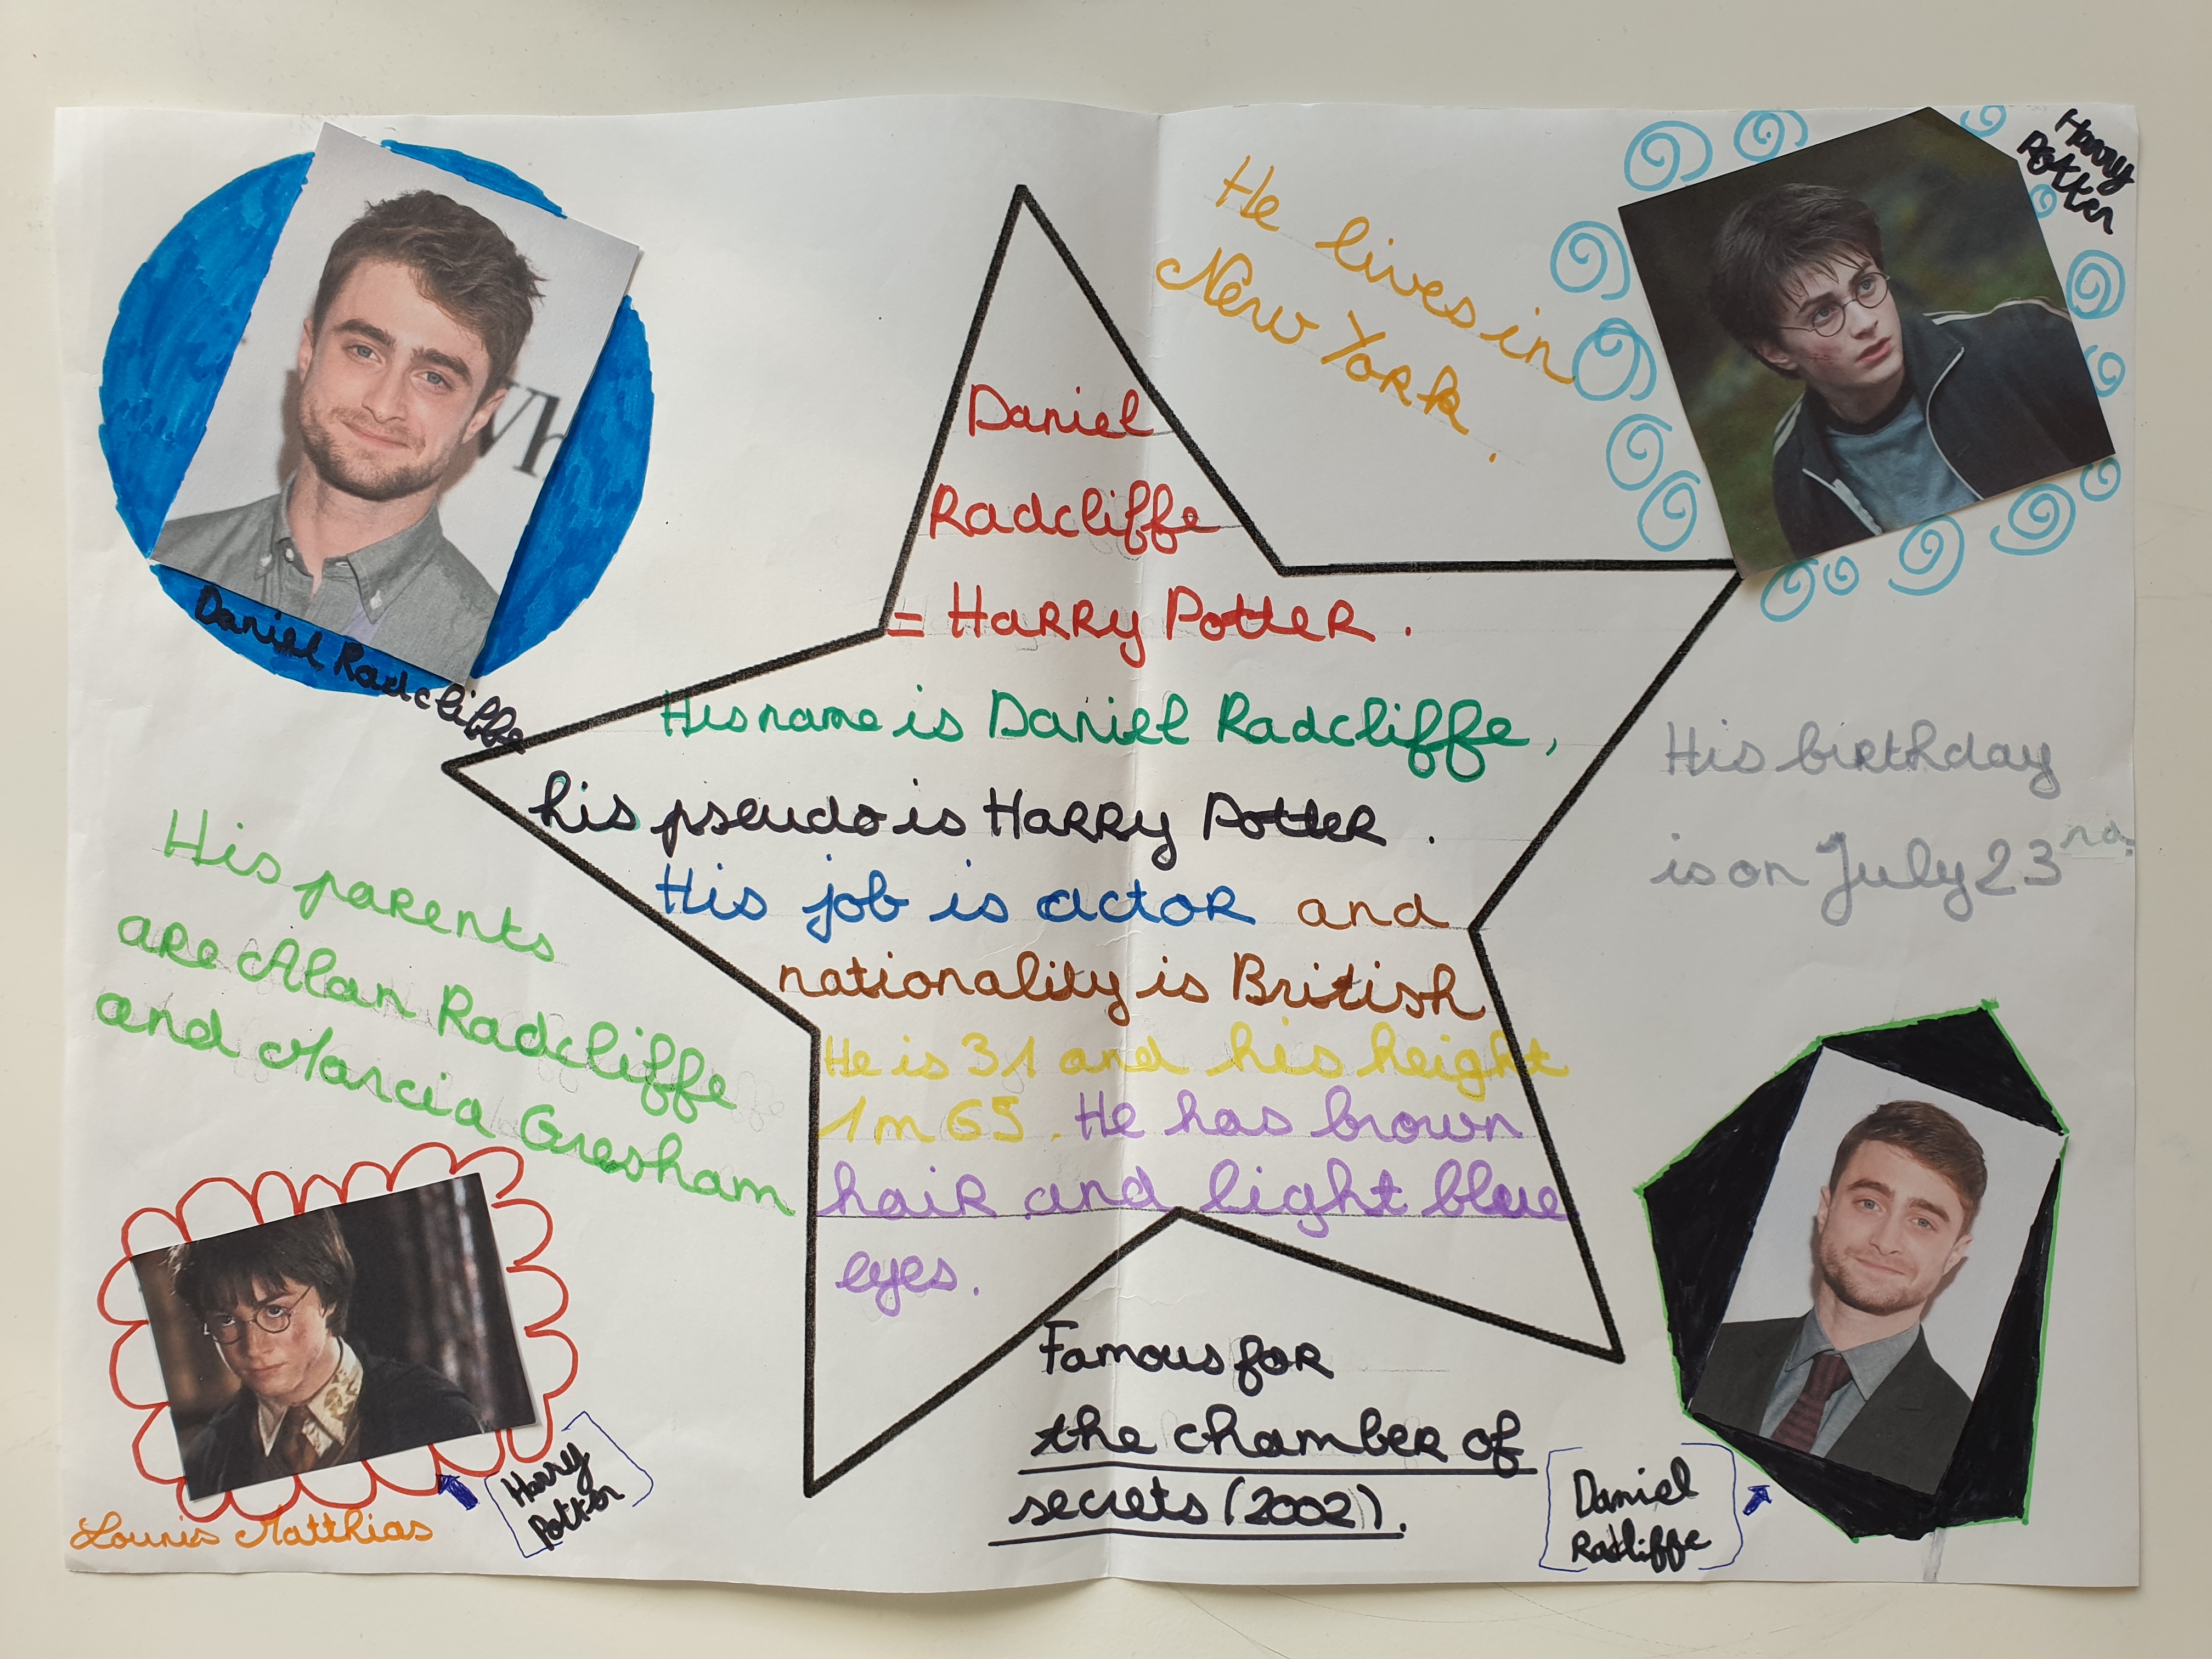 Daniel
Radcliffe
= Harry Potter.
His name is Daniel Radcliffe,
his pseudo is Harry Potter.
His job is actor and
nationality is British
He is 31 and his height
1m65. He has brown
hair and light blue
eyes.
He lives in
New York.
Harry
Potter
Daniel Radcliffe
Wh
His birthday
is on July 23rd.
His parents
are Alan Radcliffe
and Marcia Gresham
Famous for
the chamber of
secrets (2002).
Harry
Potter
Daniel
Radcliffe
Lounis Matthias